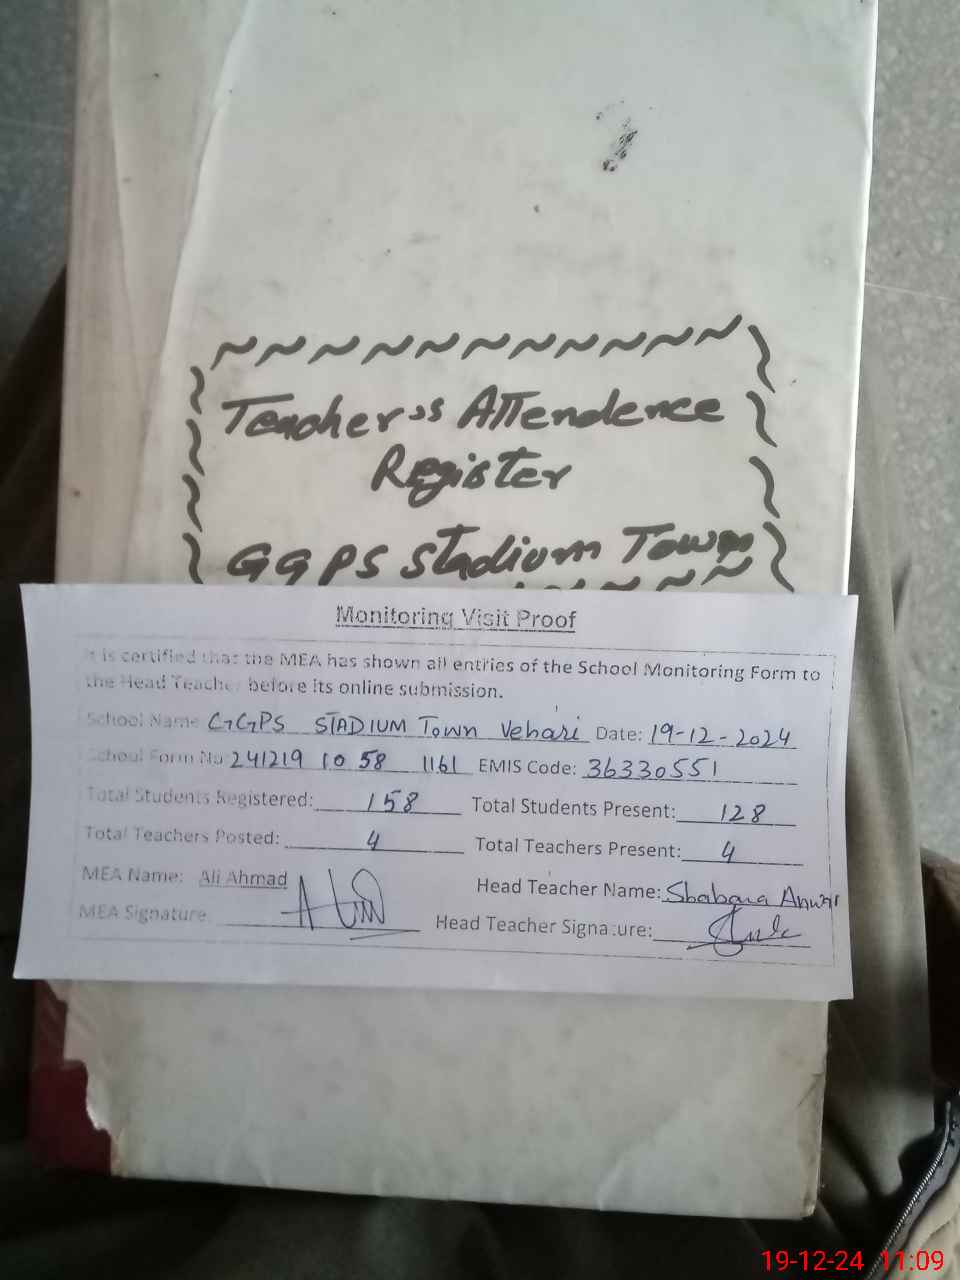 Teacher's Attendence
Register
GGPS Stadium Town
Monitoring Visit Proof
It is certified that the MEA has shown all entries of the School Monitoring Form to
the Head Teacher before its online submission.
School Name GGPS STADIUM Town Vehari Date: 19-12-2024
School Form No: 241219 10 58 1161 EMIS Code: 36330551
Total Students Registered: 158 Total Students Present: 128
Total Teachers Posted: 4 Total Teachers Present: 4
MEA Name: Ali Ahmad Head Teacher Name: Shabana Anwar
MEA Signature: Head Teacher Signature:
19-12-24 11:09